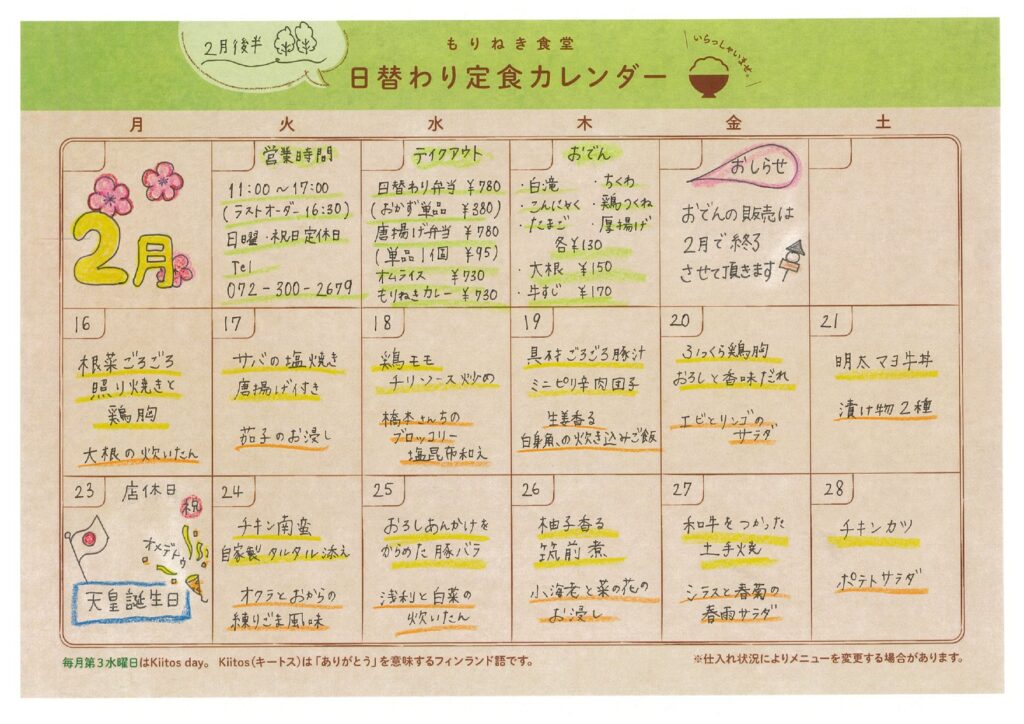 2月後半
もりねき食堂
日替わり定食カレンダー
いらっしゃいませ。
月 火 水 木 金 土
2月
営業時間
11:00～17:00
(ラストオーダー 16:30)
日曜・祝日定休日
Tel
072-300-2679
テイクアウト
日替わり弁当 ¥780
(おかず単品 ¥380)
唐揚げ弁当 ¥780
(単品1個 ¥95)
オムライス ¥730
もりねきカレー ¥730
おでん
・白滝 ・ちくわ
・こんにゃく ・鶏つくね
・たまご ・厚揚げ
各¥130
・大根 ¥150
・牛すじ ¥170
おしらせ
おでんの販売は
2月で終了
させて頂きます
16
根菜ごろごろ
照り焼きと
鶏胸
大根の炊いたん
17
サバの塩焼き
唐揚げ付き
茄子のお浸し
18
鶏モモ
チリソース炒め
橋本さんちの
ブロッコリー
塩昆布和え
19
具材ごろごろ豚汁
ミニピリ辛肉団子
生姜香る
白身魚の炊き込みご飯
20
ふっくら鶏胸
おろしと香味だれ
エビとリンゴの
サラダ
21
明太マヨ牛丼
漬け物2種
23 店休日
祝
オメデトウ
天皇誕生日
24
チキン南蛮
自家製タルタル添え
オクラとおからの
練りごま風味
25
おろしあんかけを
からめた豚バラ
浅利と白菜の
炊いたん
26
柚子香る
筑前煮
小海老と菜の花の
お浸し
27
和牛をつかった
土手焼
シラスと春菊の
春雨サラダ
28
チキンカツ
ポテトサラダ
毎月第3水曜日はKiitos day。 Kiitos(キートス)は「ありがとう」を意味するフィンランド語です。
※仕入れ状況によりメニューを変更する場合があります。